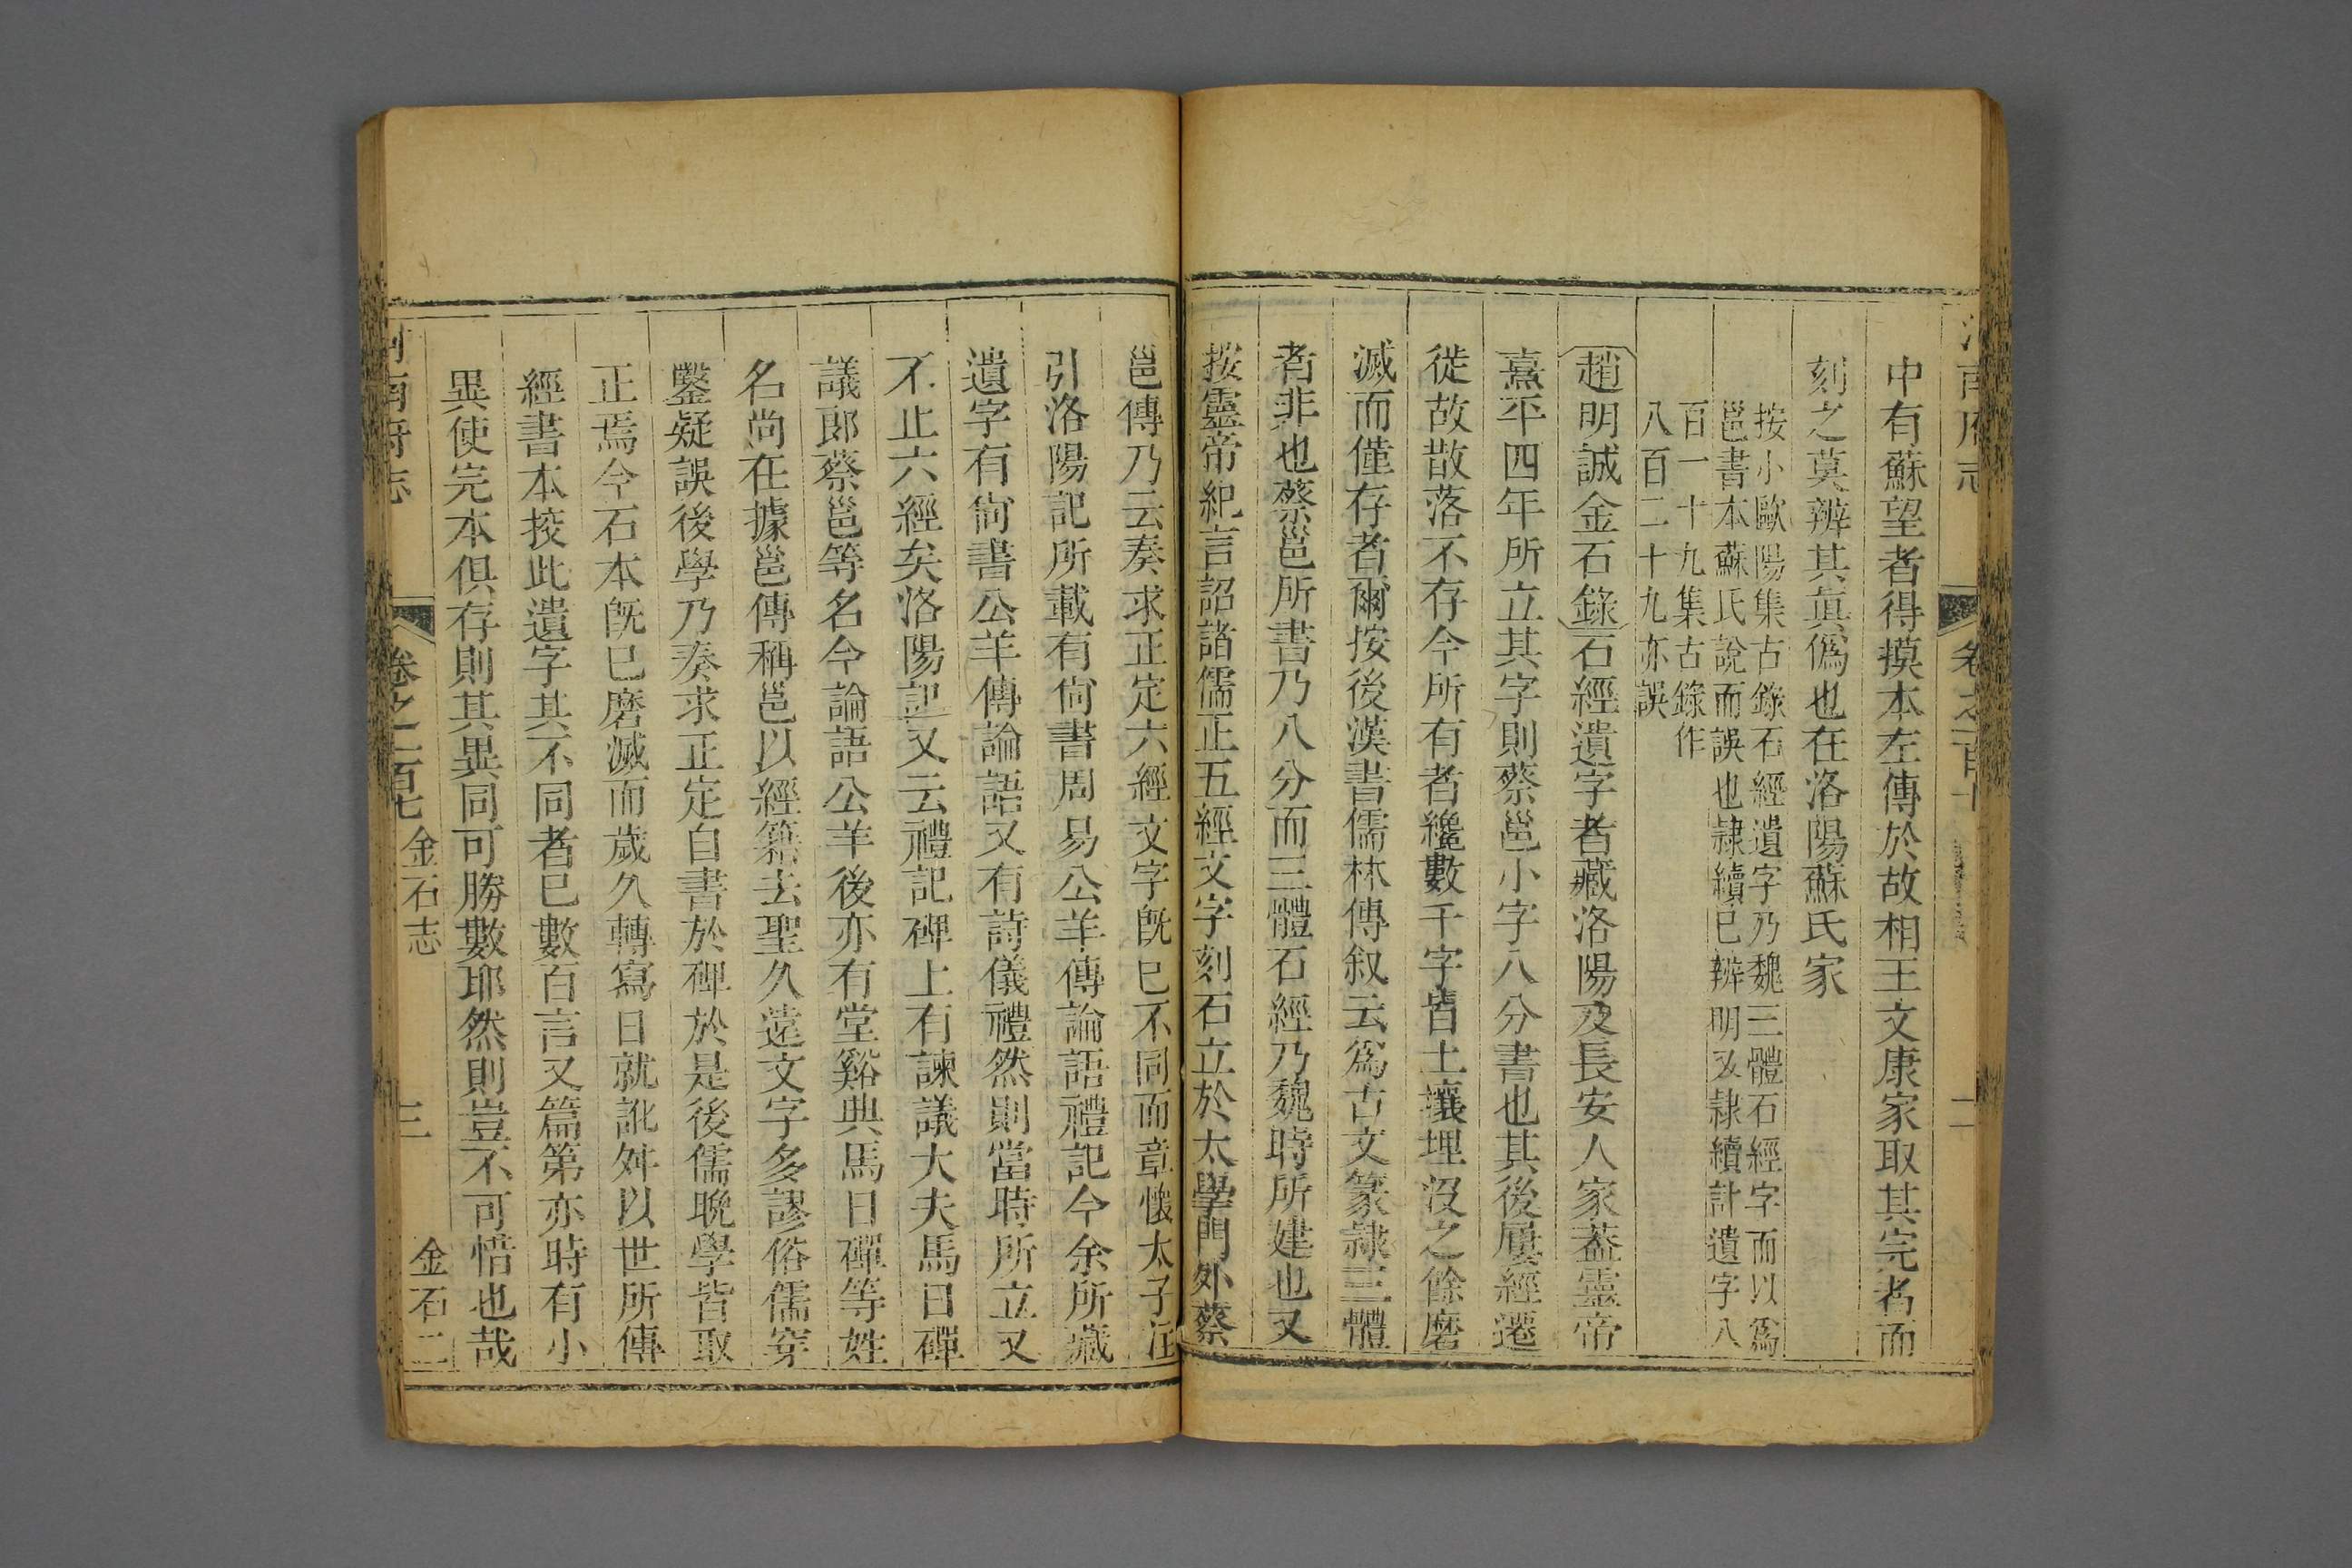 中有蘇望者得摸本左傳於故相王文康家取其完者而
刻之莫辨其眞僞也在洛陽蘇氏家
按小歐陽集古錄石經遺字乃魏三體石經字而以爲
邕書本蘇氏說而誤也隸續已辨明又隸續計遺字八
百一十九集古錄作
八百二十九亦誤
趙明誠金石錄石經遺字者藏洛陽及長安人家蓋靈帝
熹平四年所立其字則蔡邕小字八分書也其後屢經遷
徙故散落不存今所有者纔數千字皆土壤埋没之餘磨
滅而僅存者爾按後漢書儒林傳叙云爲古文篆隸三體
者非也蔡邕所書乃八分而三體石經乃魏時所建也又
按靈帝紀言詔諸儒正五經文字刻石立於太學門外蔡
邕傳乃云奏求正定六經文字旣已不同而章懷太子注
引洛陽記所載有尙書周易公羊傳論語禮記今余所藏
遺字有尙書公羊傳論語又有詩儀禮然則當時所立又
不止六經矣洛陽記又云禮記碑上有諫議大夫馬日磾
議郎蔡邕等名今論語公羊後亦有堂谿典馬日磾等姓
名尚在據邕傳稱邕以經籍去聖久遠文字多謬俗儒穿
鑿疑誤後學乃奏求正定自書於碑於是後儒晚學皆取
正焉今石本旣已磨滅而歲久轉寫日就訛舛以世所傳
經書本挍此遺字其不同者已數百言又篇第亦時有小
異使完本俱存則其異同可勝數耶然則豈不可惜也哉
河南府志 卷之一百七 金石志 三 金石二